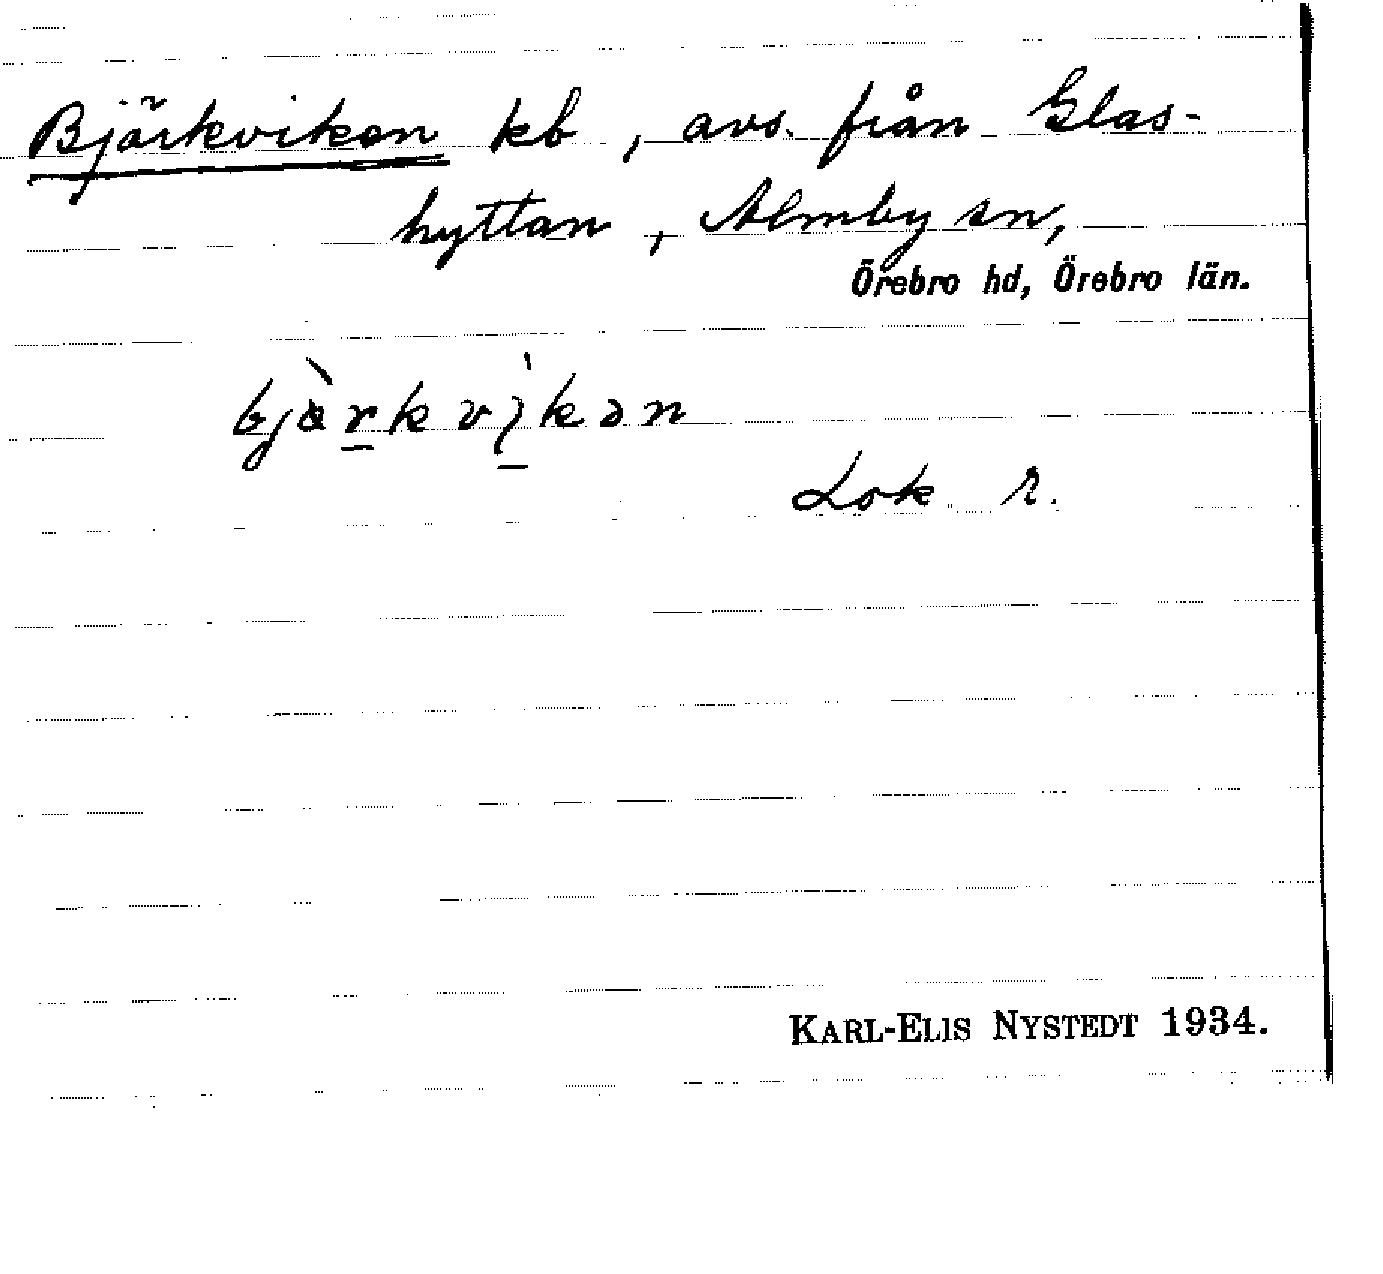 Björkviken kb, avs. från Glas-
hyttan, Almby sn,
Örebro hd, Örebro län.
bjèrkvìkən
Lok r.
KARL-ELIS NYSTEDT 1934.